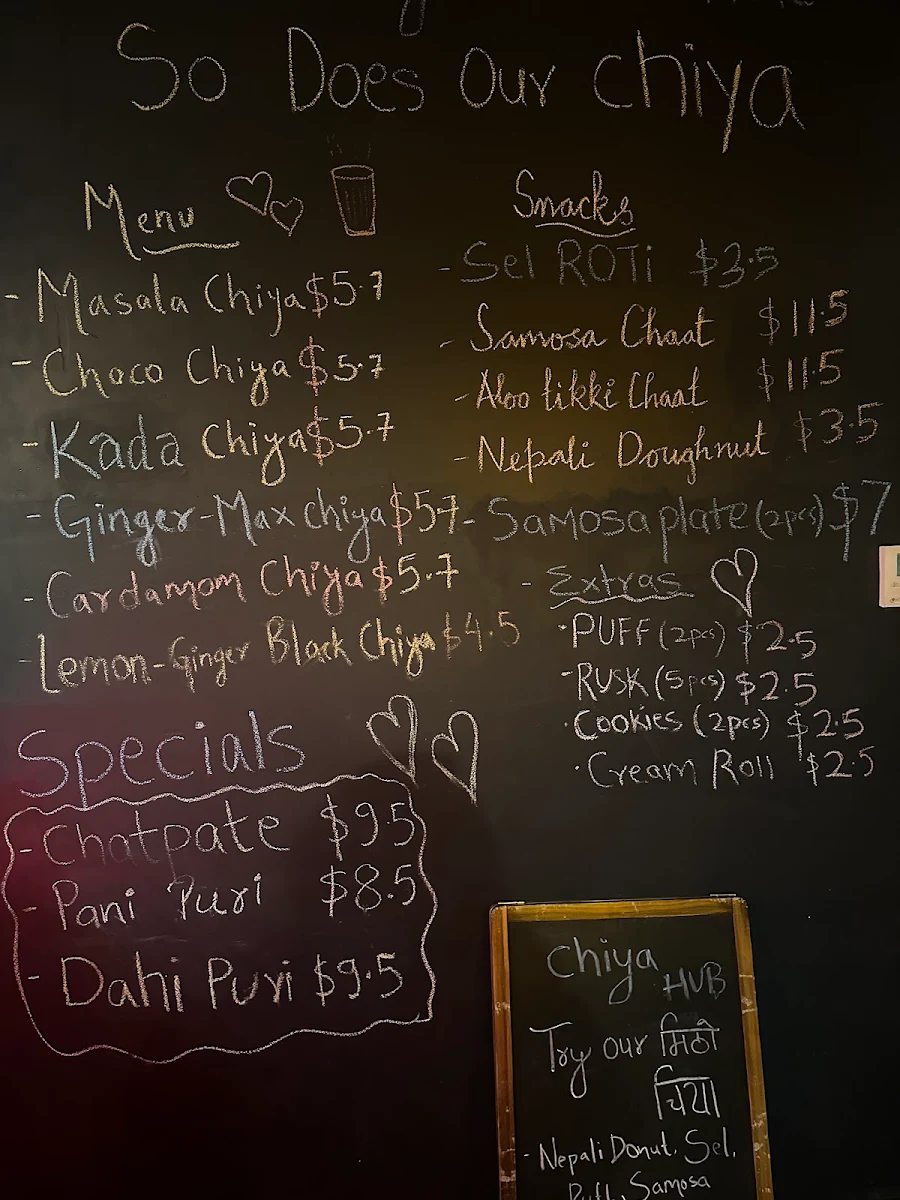 So Does Our Chiya
Menu
- Masala Chiya $5.7
- Choco Chiya $5.7
- Kada Chiya $5.7
- Ginger-Max chiya $5.7
- Cardamom Chiya $5.7
- Lemon-Ginger Black Chiya $4.5
Specials
- Chatpate $9.5
- Pani Puri $8.5
- Dahi Puri $9.5
Snacks
- Sel ROTi $3.5
- Samosa Chaat $11.5
- Aloo tikki Chaat $11.5
- Nepali Doughnut $3.5
- Samosa plate (2pcs) $7
- Extras
· PUFF (2pcs) $2.5
- RUSK (5pcs) $2.5
· Cookies (2pcs) $2.5
· Cream Roll $2.5
Chiya
HUB
Try our मिठो
चिया
- Nepali Donut, Sel,
Puff, Samosa